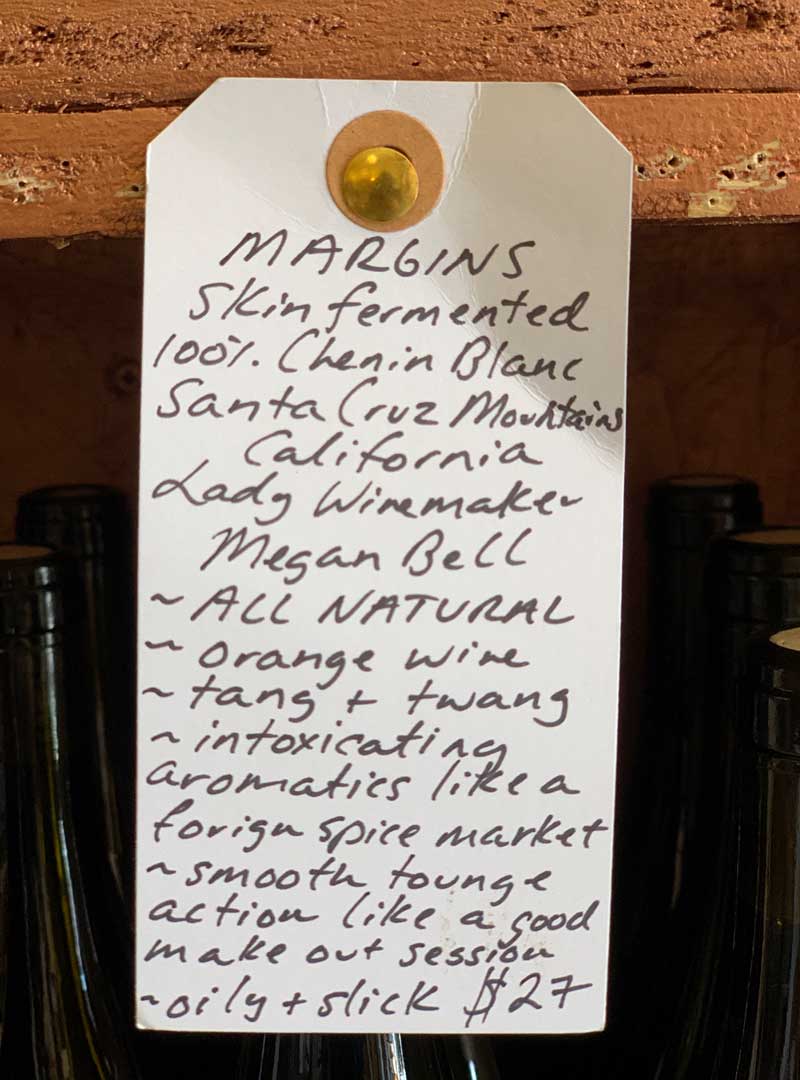 MARGINS
Skin fermented
100%. Chenin Blanc
Santa Cruz Mountains
California
Lady Winemaker
Megan Bell
~ ALL NATURAL
~ orange wine
~ tang + twang
~ intoxicating
aromatics like a
forign spice market
~ smooth tounge
action like a good
make out session
~oily + slick $27